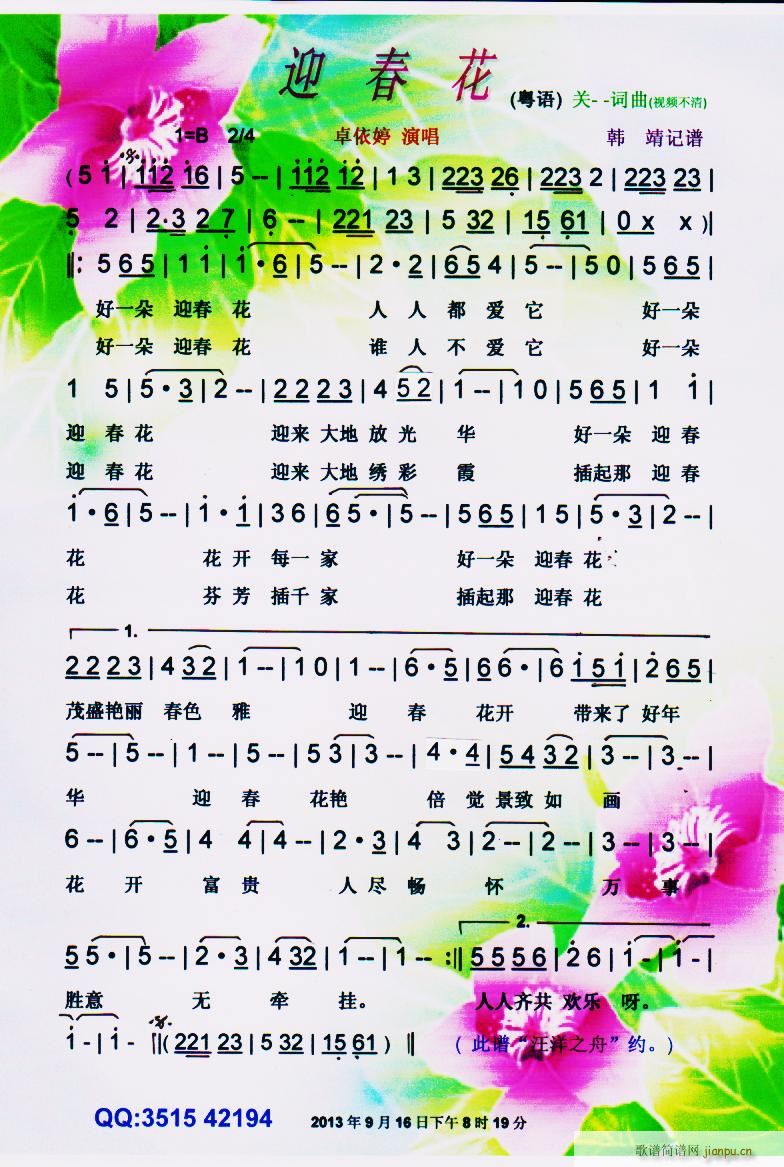 迎春花
(粤语) 关- -词曲(视频不清)
1=B 2/4 卓依婷 演唱 韩 靖记谱
( 5 1 | 112 16 | 5 -- | 112 12 | 1 3 | 223 26 | 223 2 | 223 23 |
5 2 | 2·3 27 | 6 -- | 221 23 | 5 32 | 15 61 | 0 x x )|
‖: 5 65 | 1 1 | 1·6 | 5 -- | 2·2 | 65 4 | 5 -- | 5 0 | 5 65 |
好一朵 迎春 花 人 人 都 爱 它 好一朵
好一朵 迎春 花 谁 人 不 爱 它 好一朵
1 5 | 5·3 | 2 -- | 22 23 | 4 52 | 1 -- | 1 0 | 5 65 | 1 1 |
迎 春花 迎来 大地 放 光 华 好一朵 迎春
迎 春花 迎来 大地 绣 彩 霞 插起那 迎春
1·6 | 5 -- | 1·1 | 3 6 | 65· | 5 -- | 5 65 | 1 5 | 5·3 | 2 -- |
花 花 开 每一 家 好一朵 迎春 花
花 芬 芳 插千 家 插起那 迎春 花
1.
22 23 | 4 32 | 1 -- | 1 0 | 1 -- | 6·5 | 6 6·6 | 1 51 | 2 65 |
茂盛艳丽 春色 雅 迎 春 花开 带来了 好年
5 -- | 5 -- | 5 -- | 5 3 | 3 -- | 4·4 | 54 32 | 3 -- | 3 -- |
华 迎 春 花艳 倍 觉 景致 如 画
6 -- | 6·5 | 4 4 | 4 -- | 2·3 | 4 3 | 2 -- | 2 -- | 3 -- | 3 -- |
花 开 富 贵 人 尽 畅 怀 万 事
2.
5 5· | 5 -- | 2·3 | 4 32 | 1 -- | 1 -- :‖ 55 56 | 2 6 | 1 - | 1 - |
胜意 无 牵 挂。 人人齐共 欢乐 呀。
1 - | 1 - ‖( 221 23 | 5 32 | 15 61 ) ‖ ( 此谱“汪洋之舟”约。)
QQ:3515 42194 2013年9月16日下午8时19分
歌谱简谱网 jianpu.cn